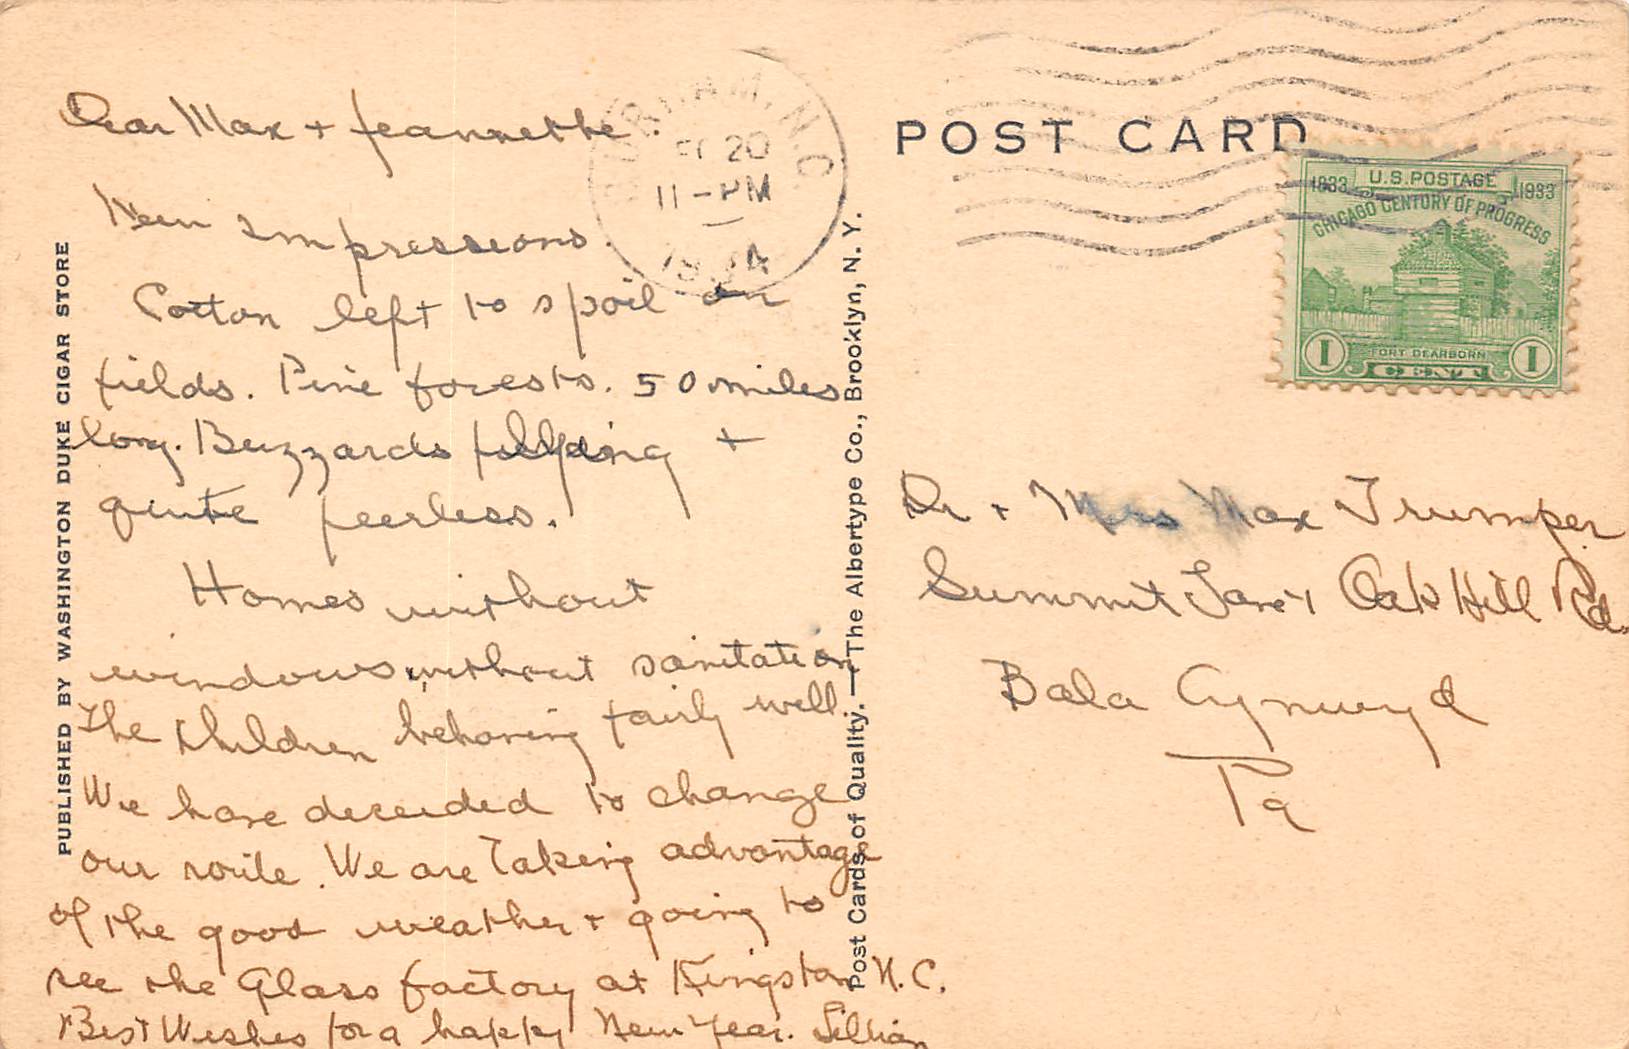 Dear Max + Jeannette.
New Impressions.
Cotton left to spoil on
fields. Pine forests. 50 miles
long. Buzzards +
quite peerless.
Homes without
windows, without sanitation
The children behaving fairly well.
We have decided to change
our route. We are Taking advantage
of the good weather + going to
see the Glass factory at Kingston N.C.
Best Wishes for a happy New Year. Lillian
PUBLISHED BY WASHINGTON DUKE CIGAR STORE
DURHAM, N.C.
20
11-PM
Post Cards of Quality. — The Albertype Co., Brooklyn, N. Y.
POST CARD
1833 U.S. POSTAGE 1933
CHICAGO CENTURY OF PROGRESS
FORT DEARBORN
1 CENT 1
Dr + Mrs Max Trumper
Summit + Oak Hill Rd.
Bala Cynwyd
Pa